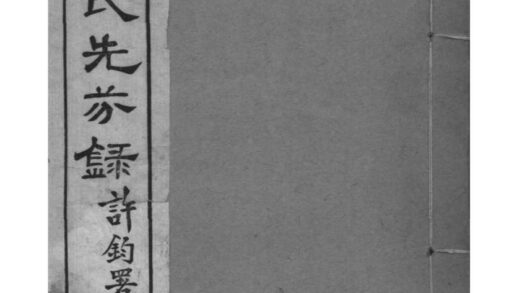 氏先芬錄
許鈞署